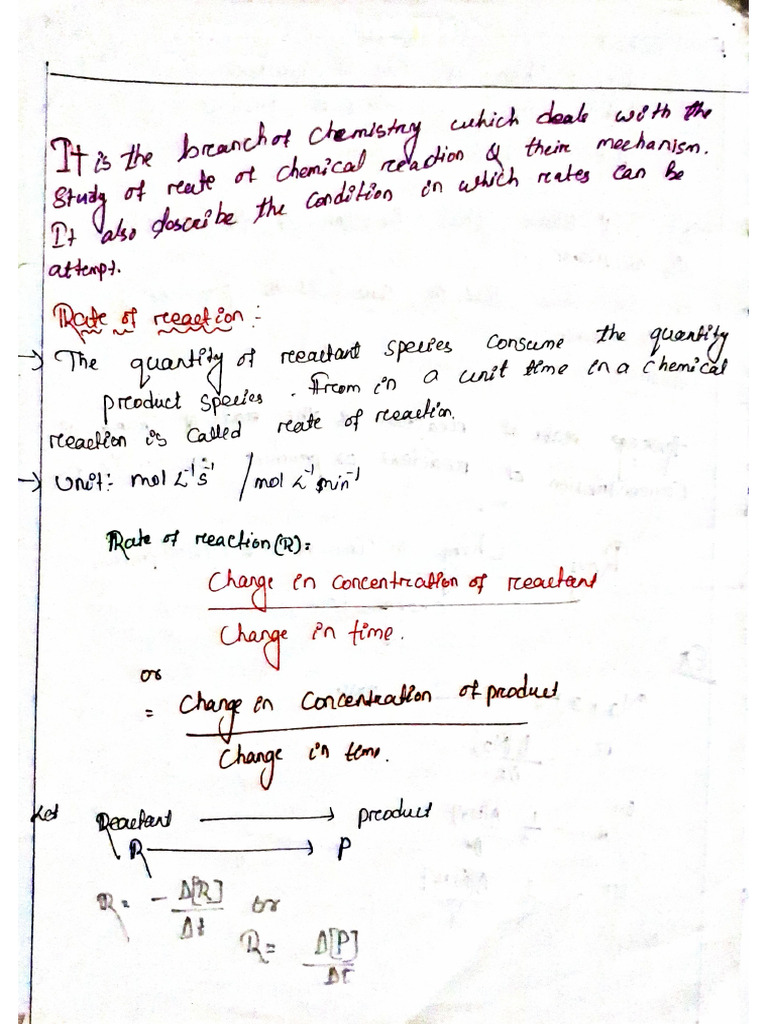 It is the branch of chemistry which deals with the
Study of rate of chemical reaction & their mechanism.
It also describe the condition in which rates can be
attempt.
Rate of reaction :-
→ The quantity of reactant species consume the quantity
product species. From in a unit time in a chemical
reaction is called rate of reaction.
→ Unit: mol L⁻¹ s⁻¹ / mol L⁻¹ min⁻¹
Rate of reaction (R) =
Change in concentration of reactant
Change in time.
or
= Change in concentration of product
Change in time.
Let Reactant ⟶ product
R ⟶ P
R = - Δ[R]/Δt or
R = Δ[P]/Δt